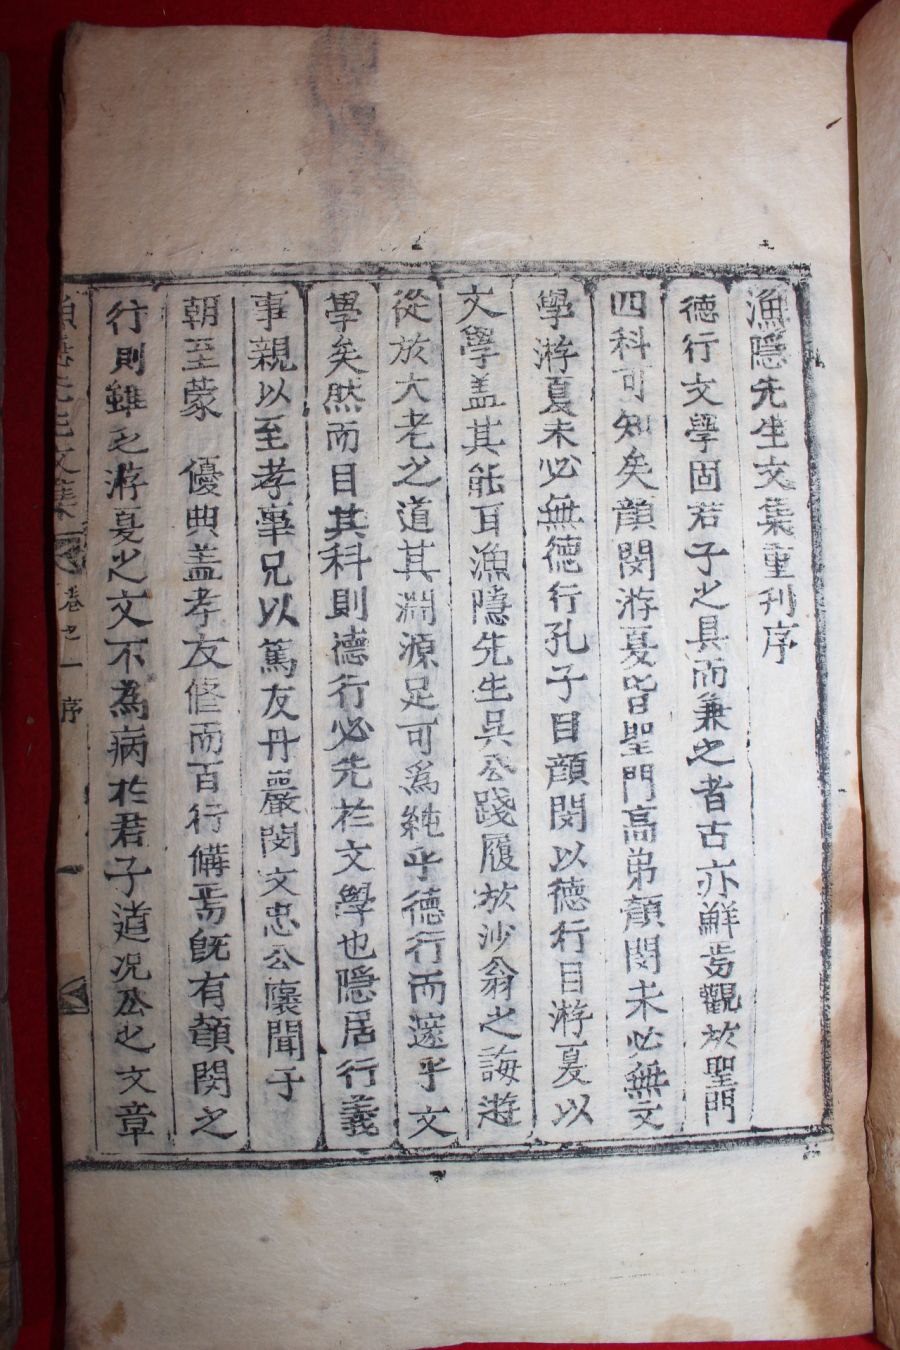 漁隱先生文集重刋序
德行文學固君子之具而兼之者古亦鮮焉觀於聖門
四科可知矣顔閔游夏皆聖門高弟顔閔未必無文
學游夏未必無德行孔子目顔閔以德行目游夏以
文學盖其能耳漁隱先生吳公踐履於沙翁之誨遊
從於大老之道其淵源足可爲純乎德行而邃乎文
學矣然而目其科則德行必先於文學也隱居行義
事親以至孝事兄以篤友丹巖閔文忠公褱聞于
朝至蒙 優典盖孝友修而百行備焉旣有顔閔之
行則雖乏游夏之文不為病於君子道况公之文章
漁隱先生文集 卷之一 序 一